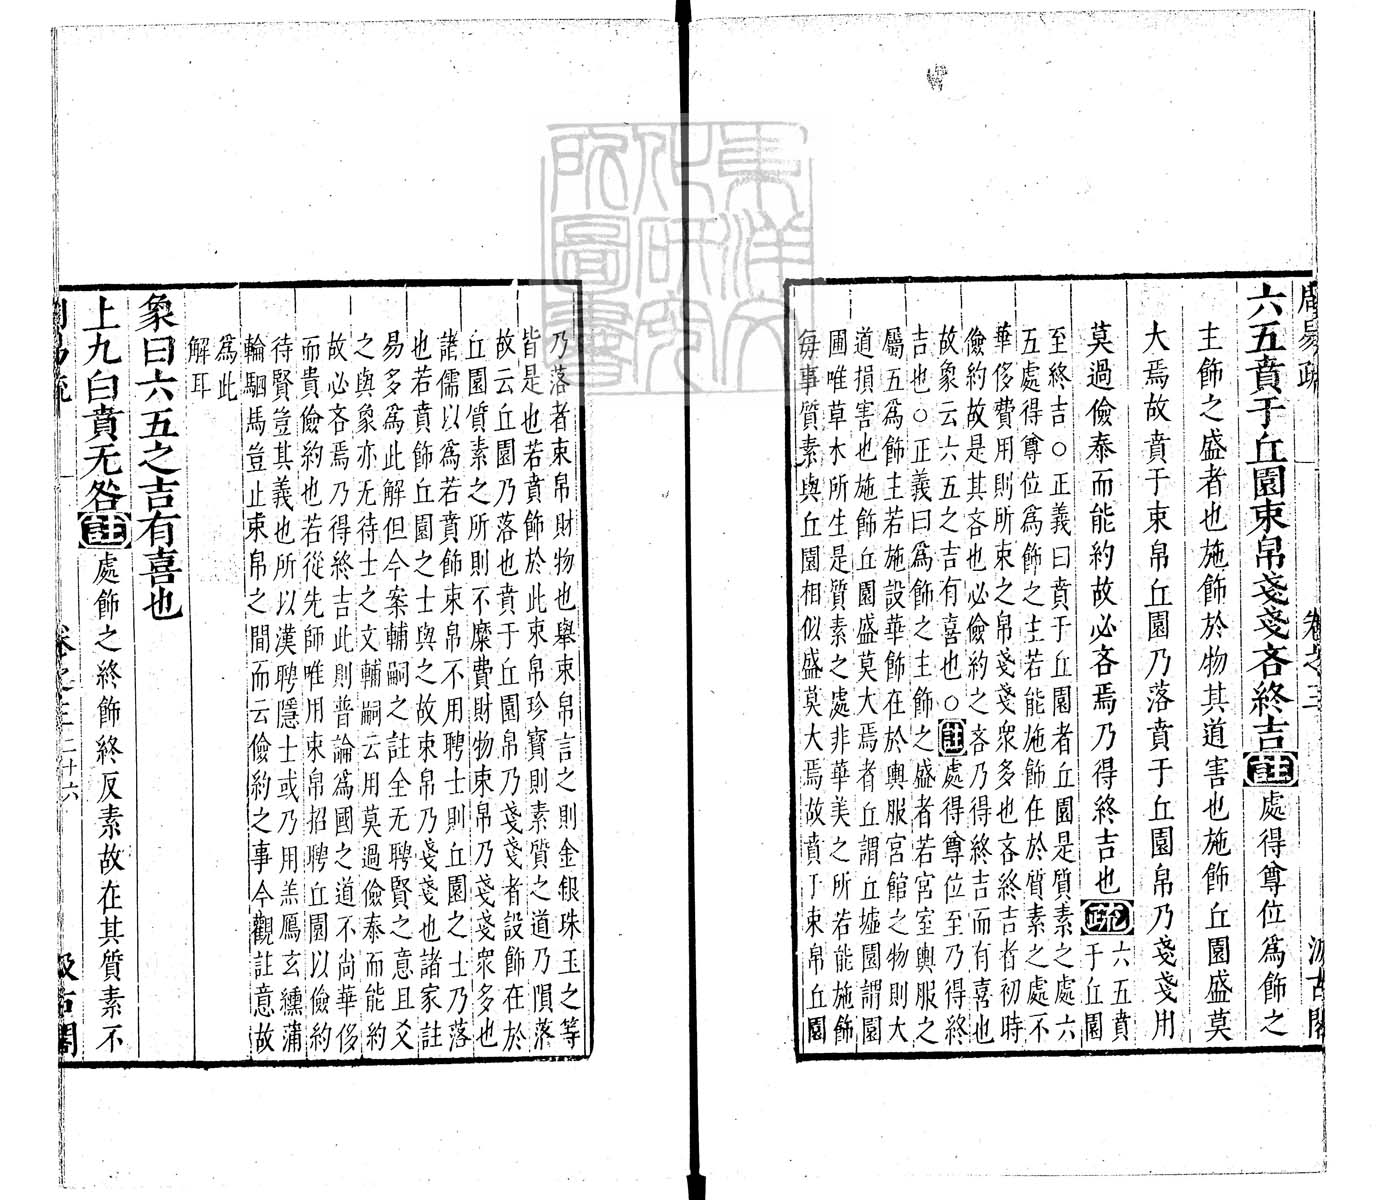 周易疏 卷之三 汲古閣
六五賁于丘園束帛戔戔吝終吉註處得尊位爲飾之
主飾之盛者也施飾於物其道害也施飾丘園盛莫
大焉故賁于束帛丘園乃落賁于丘園帛乃戔戔用
莫過儉泰而能約故必吝焉乃得終吉也疏六五賁
于丘園
至終吉○正義曰賁于丘園者丘園是質素之處六
五處得尊位爲飾之主若能施飾在於質素之處不
華侈費用則所束之帛戔戔衆多也吝終吉者初時
儉約故是其吝也必儉約之吝乃得終吉而有喜也
故象云六五之吉有喜也○註處得尊位至乃得終
吉也○正義曰爲飾之主飾之盛者若宮室輿服之
屬五爲飾主若施設華飾在於輿服宮館之物則大
道損害也施飾丘園盛莫大焉者丘謂丘墟園謂園
圃唯草木所生是質素之處非華美之所若能施飾
每事質素與丘園相似盛莫大焉故賁于束帛丘園
乃落者束帛財物也舉束帛言之則金銀珠玉之等
皆是也若賁飾於此束帛珍寶則素質之道乃隕落
故云丘園乃落也賁于丘園帛乃戔戔者設飾在於
丘園質素之所則不糜費財物束帛乃戔戔衆多也
諸儒以爲若賁飾束帛不用聘士則丘園之士乃落
也若賁飾丘園之士與之故束帛乃戔戔也諸家註
易多爲此解但今案輔嗣之註全无聘賢之意且爻
之與象亦无待士之文輔嗣云用莫過儉泰而能約
故必吝焉乃得終吉此則普論爲國之道不尚華侈
而貴儉約也若從先師唯用束帛招聘丘園以儉約
待賢豈其義也所以漢聘隱士或乃用羔鴈玄纁蒲
輪駟馬豈止束帛之間而云儉約之事今觀註意故
爲此
解耳
象曰六五之吉有喜也
上九白賁无咎註處飾之終飾終反素故在其質素不
周易疏 卷之三 二十六 汲古閣
東洋文化研究所圖書